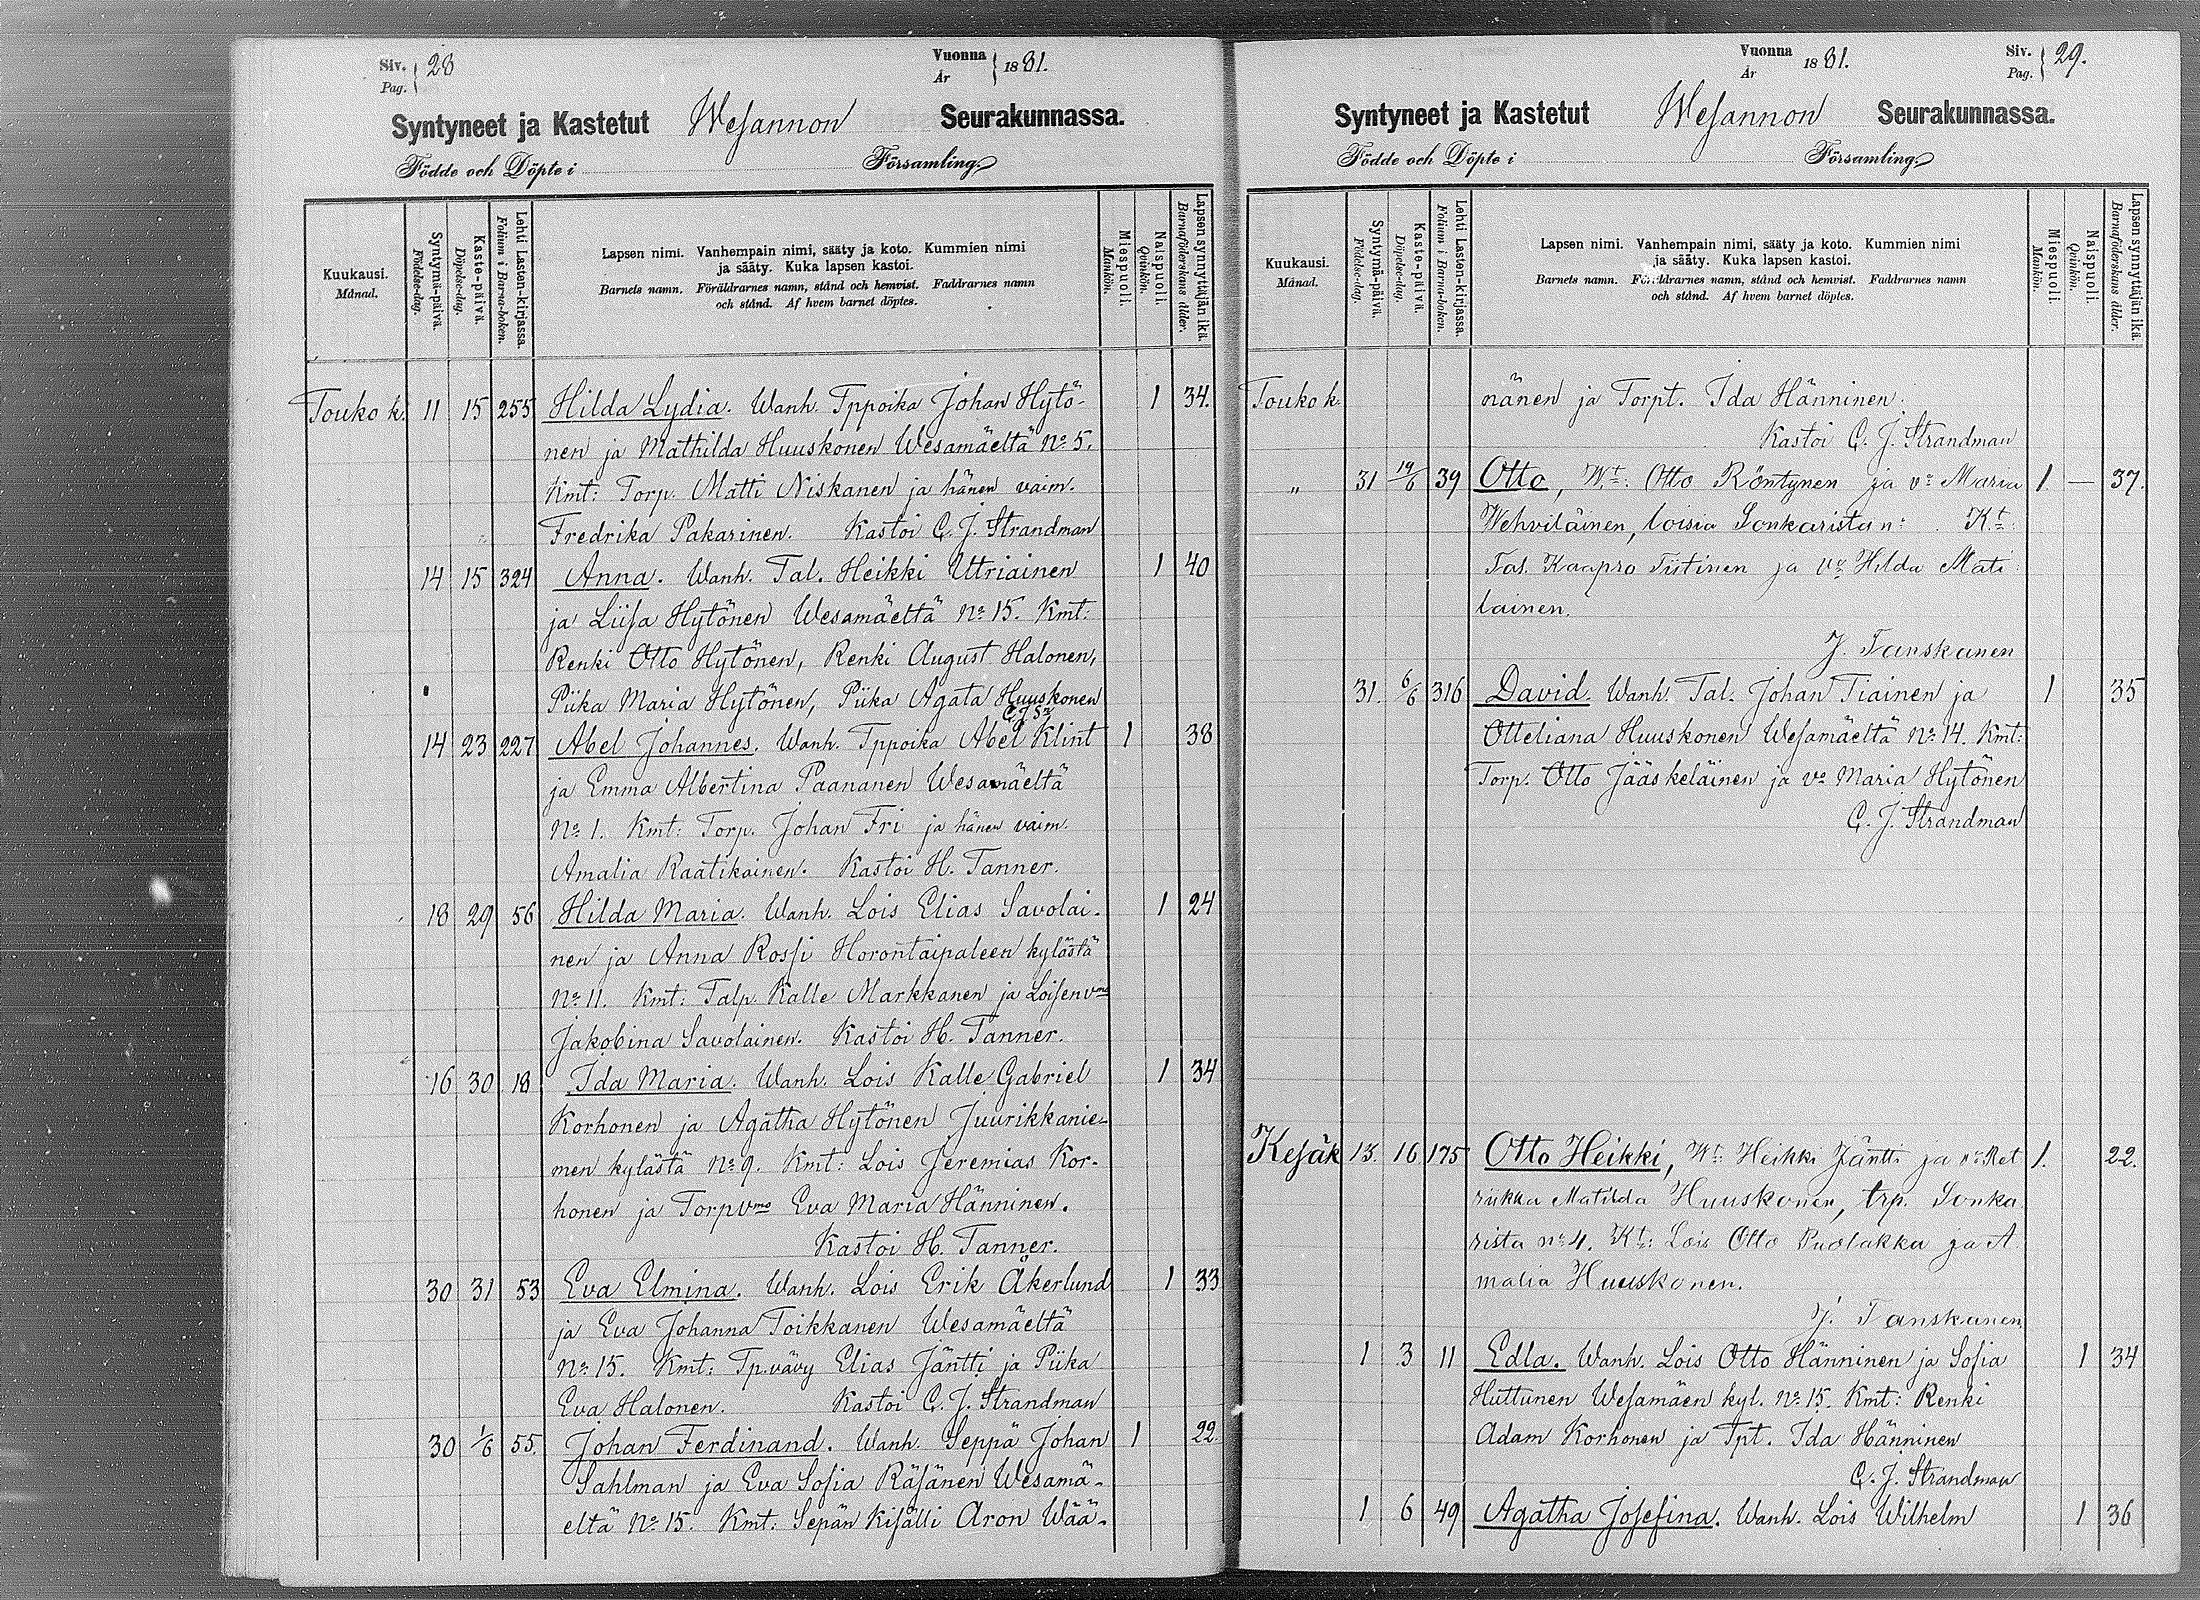 Siv. Pag. 28
Vuonna År 1881.
Syntyneet ja Kastetut Wesannon Seurakunnassa.
Födde och Döpte i Församling.
Kuukausi. Månad.
Syntymä-päivä. Födelse-dag.
Kaste-päivä. Döpelse-dag.
Lehti Lasten-kirjassa. Folium i Barna-boken.
Lapsen nimi. Vanhempain nimi, sääty ja koto. Kummien nimi
ja sääty. Kuka lapsen kastoi.
Barnets namn. Föräldrarnes namn, stånd och hemvist. Faddrarnes namn
och stånd. Af hvem barnet döptes.
Miespuoli. Mankön.
Naispuoli. Qvinkön.
Lapsen synnyttäjän ikä. Barnaföderskans ålder.
Touko k. 11 15 255 Hilda Lydia. Wanh. Tppoika Johan Hytö- 1 34.
nen ja Mathilda Huuskonen Wesamäeltä No 5.
Kmt: Torp. Matti Niskanen ja hänen vaim.
Fredrika Pakarinen. Kastoi C. J. Strandman
14 15 324 Anna. Wanh. Tal. Heikki Utriainen 1 40
ja Liisa Hytönen Wesamäeltä No 15. Kmt:
Renki Otto Hytönen, Renki August Halonen,
Piika Maria Hytönen, Piika Agata Huuskonen
C. J. Sn
14 23 227 Abel Johannes. Wanh. Tppoika Abel Klint 1 38
ja Emma Albertina Paananen Wesamäeltä
No 1. Kmt: Torp. Johan Fri ja hänen vaim.
Amalia Raatikainen. Kastoi H. Tanner.
18 29 56 Hilda Maria. Wanh. Lois Elias Savolai- 1 24
nen ja Anna Rossi Horontaipaleen kylästä
No 11. Kmt: Talp. Kalle Markkanen ja Loisen vmo
Jakobina Savolainen. Kastoi H. Tanner.
16 30 18 Ida Maria. Wanh. Lois Kalle Gabriel 1 34
Korhonen ja Agatha Hytönen Juurikkanie-
men kylästä No 9. Kmt: Lois Jeremias Kor-
honen ja Torpvmo Eva Maria Hänninen.
Kastoi H. Tanner.
30 31 53 Eva Elmina. Wanh. Lois Erik Åkerlund 1 33
ja Eva Johanna Toikkanen Wesamäeltä
No 15. Kmt: Tp.vävy Elias Jäntti ja Piika
Eva Halonen. Kastoi C. J. Strandman
30 1/6 55. Johan Ferdinand. Wanh. Seppä Johan 1 22
Sahlman ja Eva Sofia Räsänen Wesamä-
eltä No 15. Kmt: Sepän kisälli Aron Wää-
Vuonna År 1881.
Siv. Pag. 29.
Syntyneet ja Kastetut Wesannon Seurakunnassa.
Födde och Döpte i Församling.
Kuukausi. Månad.
Syntymä-päivä. Födelse-dag.
Kaste-päivä. Döpelse-dag.
Lehti Lasten-kirjassa. Folium i Barna-boken.
Lapsen nimi. Vanhempain nimi, sääty ja koto. Kummien nimi
ja sääty. Kuka lapsen kastoi.
Barnets namn. Föräldrarnes namn, stånd och hemvist. Faddrarnes namn
och stånd. Af hvem barnet döptes.
Miespuoli. Mankön.
Naispuoli. Qvinkön.
Lapsen synnyttäjän ikä. Barnaföderskans ålder.
Touko k. nänen ja Torpt. Ida Hänninen.
Kastoi C. J. Strandman
" 31 19/6 39 Otto, Wt: Otto Röntynen ja vo Maria 1. — 37.
Wehviläinen, loisia Sonkarista no . Kt:
Tal. Kaapro Tiitinen ja vo Hilda Mati
lainen.
J. Tanskanen
31. 6/6 316 David. Wanh. Tal. Johan Tiainen ja 1 35
Otteliana Huuskonen Wesamäeltä No 14. Kmt:
Torp. Otto Jääskeläinen ja vo Maria Hytönen
C. J. Strandman
Kesäk 13. 16 175 Otto Heikki, Wt: Heikki Jäntti ja vo Ret 1. 22.
riikka Matilda Huuskonen, trp. Sonka
rista no 4. Kt: Lois Otto Puolakka ja A
malia Huuskonen.
J. Tanskanen,
1 3 11 Edla. Wanh. Lois Otto Hänninen ja Sofia 1 34
Huttunen Wesamäen kyl. No 15. Kmt: Renki
Adam Korhonen ja Tpt. Ida Hänninen
C. J. Strandman
1 6 49 Agatha Josefina. Wanh. Lois Wilhelm 1 36